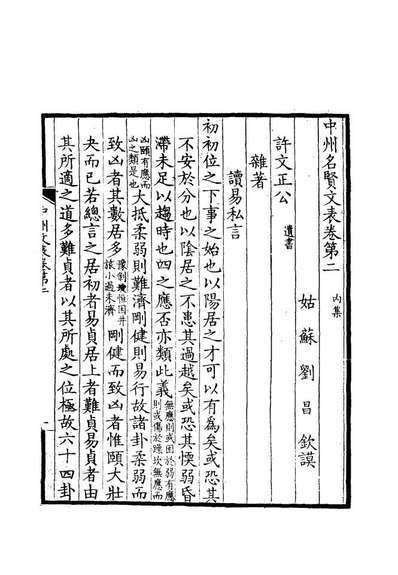 中州名賢文表卷第二 內集
姑蘇劉昌欽謨
許文正公 遺書
雜著
讀易私言
初初位之下事之始也以陽居之才可以有為矣或恐其
不安於分也以陰居之不患其過越矣或恐其愞弱昏
滯未足以趨時也四之應否亦類此義無應則或困於弱有應
則或傷於躁坎無應而
凶頤有應而
凶之類是也大抵柔弱則難濟剛健則易行故諸卦柔弱而
致凶者其數居多豫剝恒困井
旅小過未濟剛健而致凶者惟頤大壯
夬而已若總言之居初者易貞居上者難貞易貞者由
其所適之道多難貞者以其所處之位極故六十四卦
中州文表卷第二
一